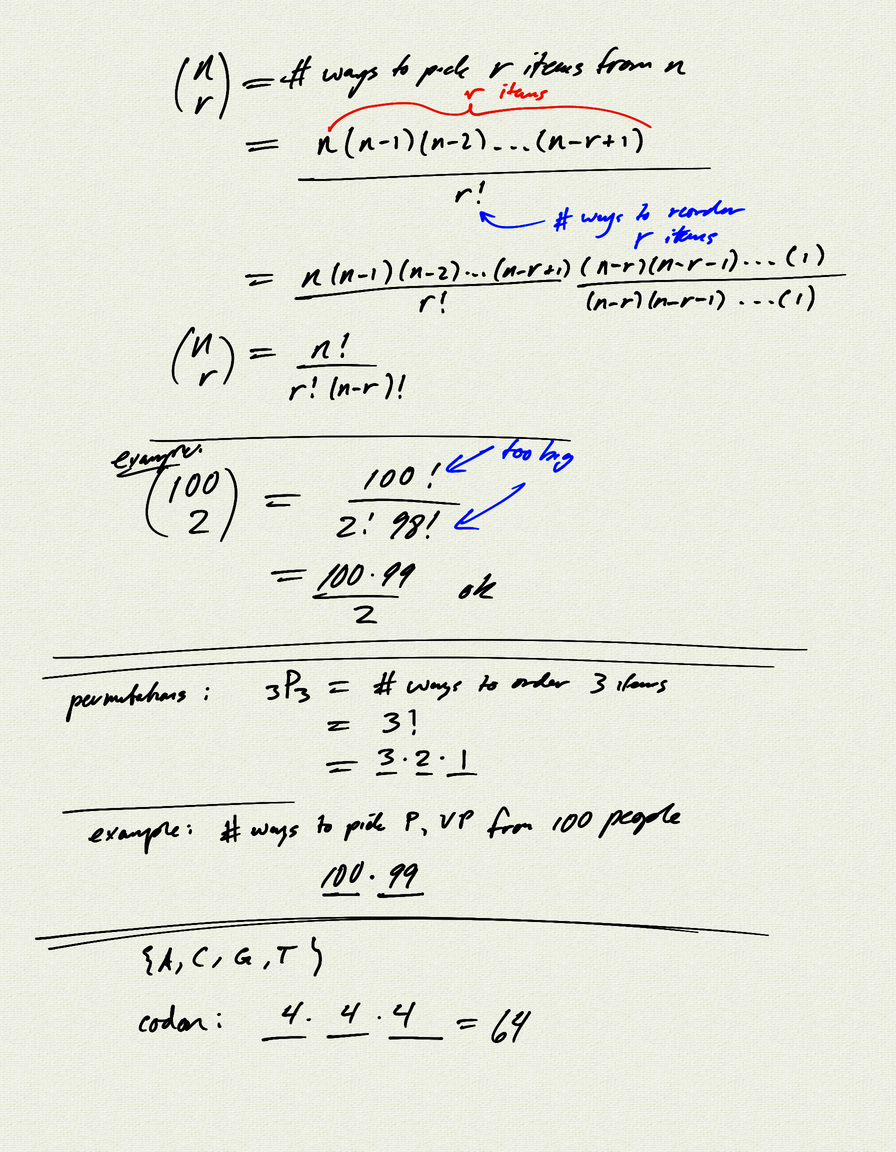 (n r) = # ways to pick r items from n
r items
= n(n-1)(n-2)...(n-r+1) / r!
# ways to reorder
r items
= n(n-1)(n-2)...(n-r+1) / r! (n-r)(n-r-1)...(1) / (n-r)(n-r-1)...(1)
(n r) = n! / r!(n-r)!
example:
too big
(100 2) = 100! / 2! 98!
= 100·99 / 2 ok
permutations: 3P3 = # ways to order 3 items
= 3!
= 3·2·1
example: # ways to pick P, VP from 100 people
100·99
{A, C, G, T}
codon: 4·4·4 = 64